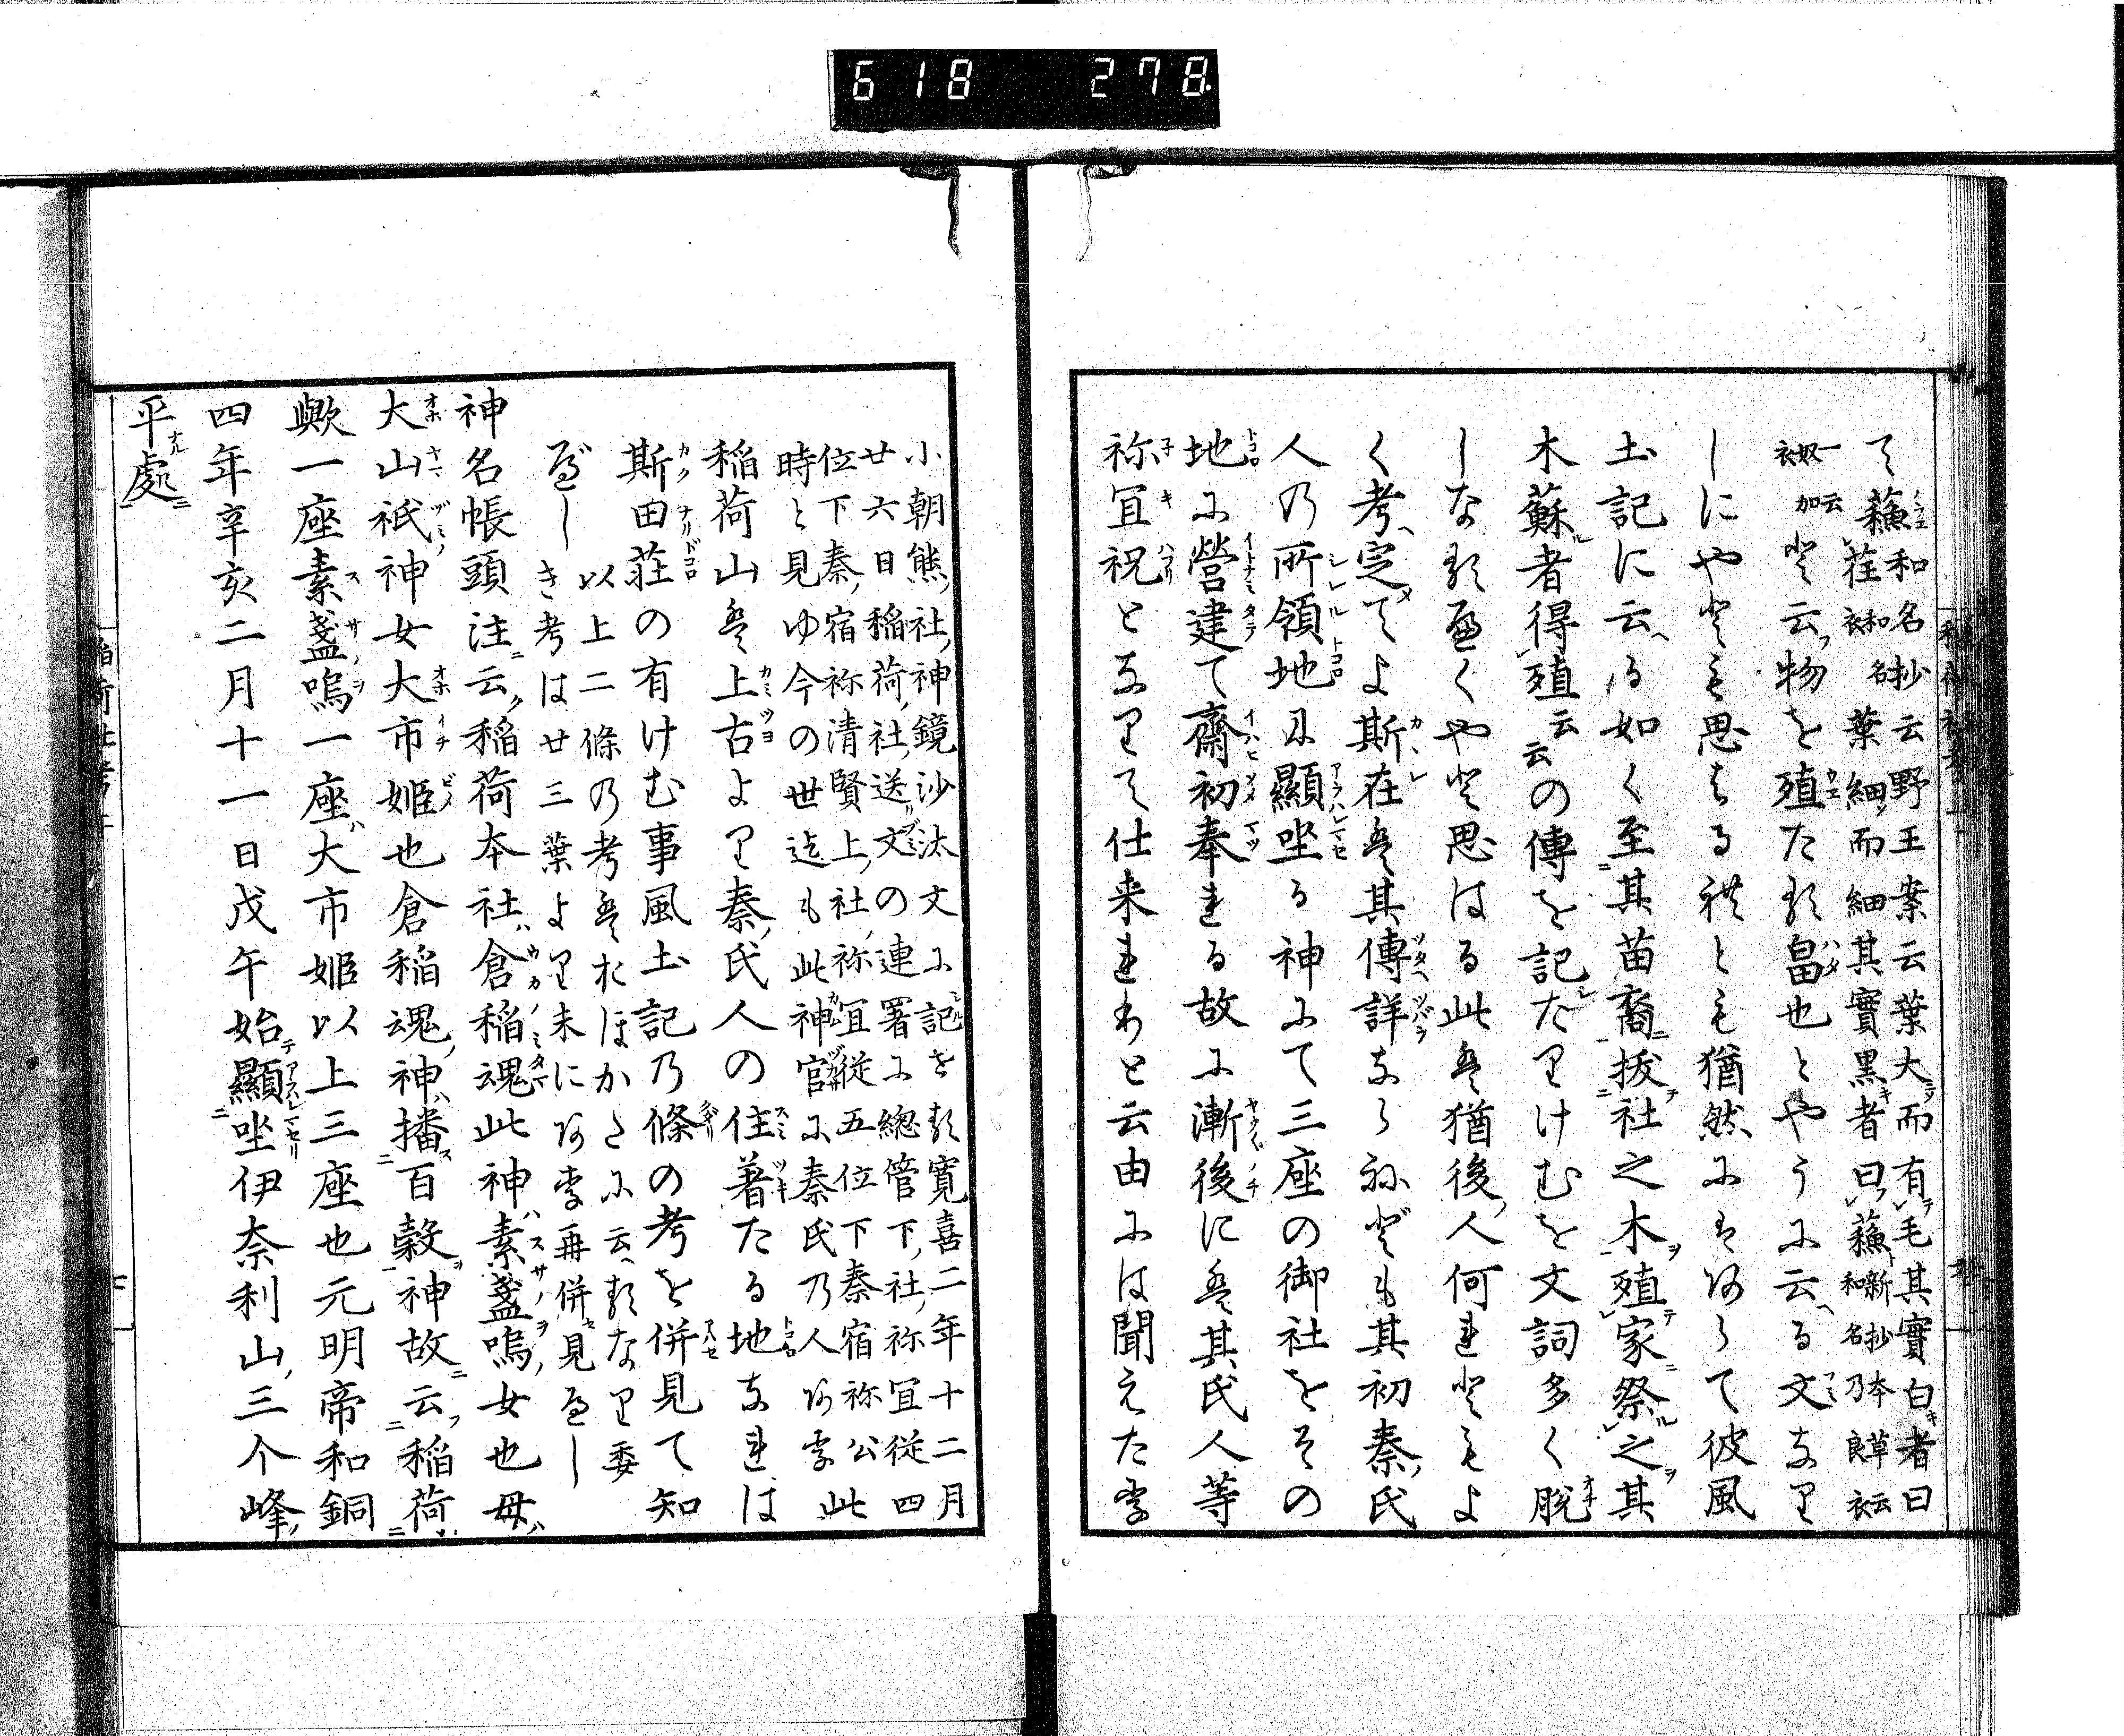 618 278
て蘓
和名抄云野王案云葉大而有毛其實白者曰
荏和名衣葉細而細其實黒者曰蘓新抄本草云和名乃良衣
一云奴加衣と云物を殖たる畠也とやうに云る文なり
しにやとも思はる礼とも猶然にはあらて彼風
土記に云る如く至其苗裔拔社之木殖家祭之其
木蘇者得殖云云の傳を記たりけむを文詞多く脱
しなるべくやと思はる此は猶後人何れともよ
く考定てよ斯在は其傳詳ならねども其初秦氏
人の所領地に顯坐る神にて三座の御社をその
地に營建て齋初奉れる故に漸後には其氏人等
祢宜祝となりて仕来れりと云由には聞えたり
小朝熊社神鏡沙汰文に記せる寛喜二年十二月
廿六日稲荷社送文の連署に總管下社祢宜従四
位下秦宿祢清賢上社祢宜従五位下秦宿祢公此
時と見ゆ今の世迄も此神官に秦氏の人あり此
稲荷山は上古より秦氏人の住著たる地なれは
斯田荘の有けむ事風土記乃條の考を併見て知
べし
以上二條の考はおほかたに云るなり委
しき考は廿三葉より末にあり再併見るべし
神名帳頭注云稲荷本社倉稲魂此神素盞嗚女也母
大山祇神女大市姫也倉稲魂神播百穀神故云稲荷
歟一座素盞嗚一座大市姫以上三座也元明帝和銅
四年辛亥二月十一日戊午始顯坐伊奈利山三个峰
平處
稲荷社考
七